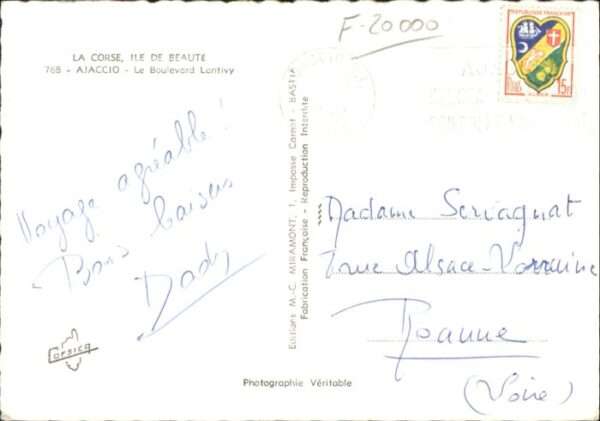 F-20000
REPUBLIQUE FRANÇAISE
15F
LA CORSE, ILE DE BEAUTÉ
768 - AJACCIO - Le Boulevard Lantivy
Voyage agréable !
Bons baisers
Dady
CORSICA
Editions M.-C. MIRAMONT, 1, Impasse Carnot - BASTIA
Fabrication Française - Reproduction Interdite
Madame Seriagnat
rue Alsace-Lorraine
Roanne
(Loire)
Photographie Véritable